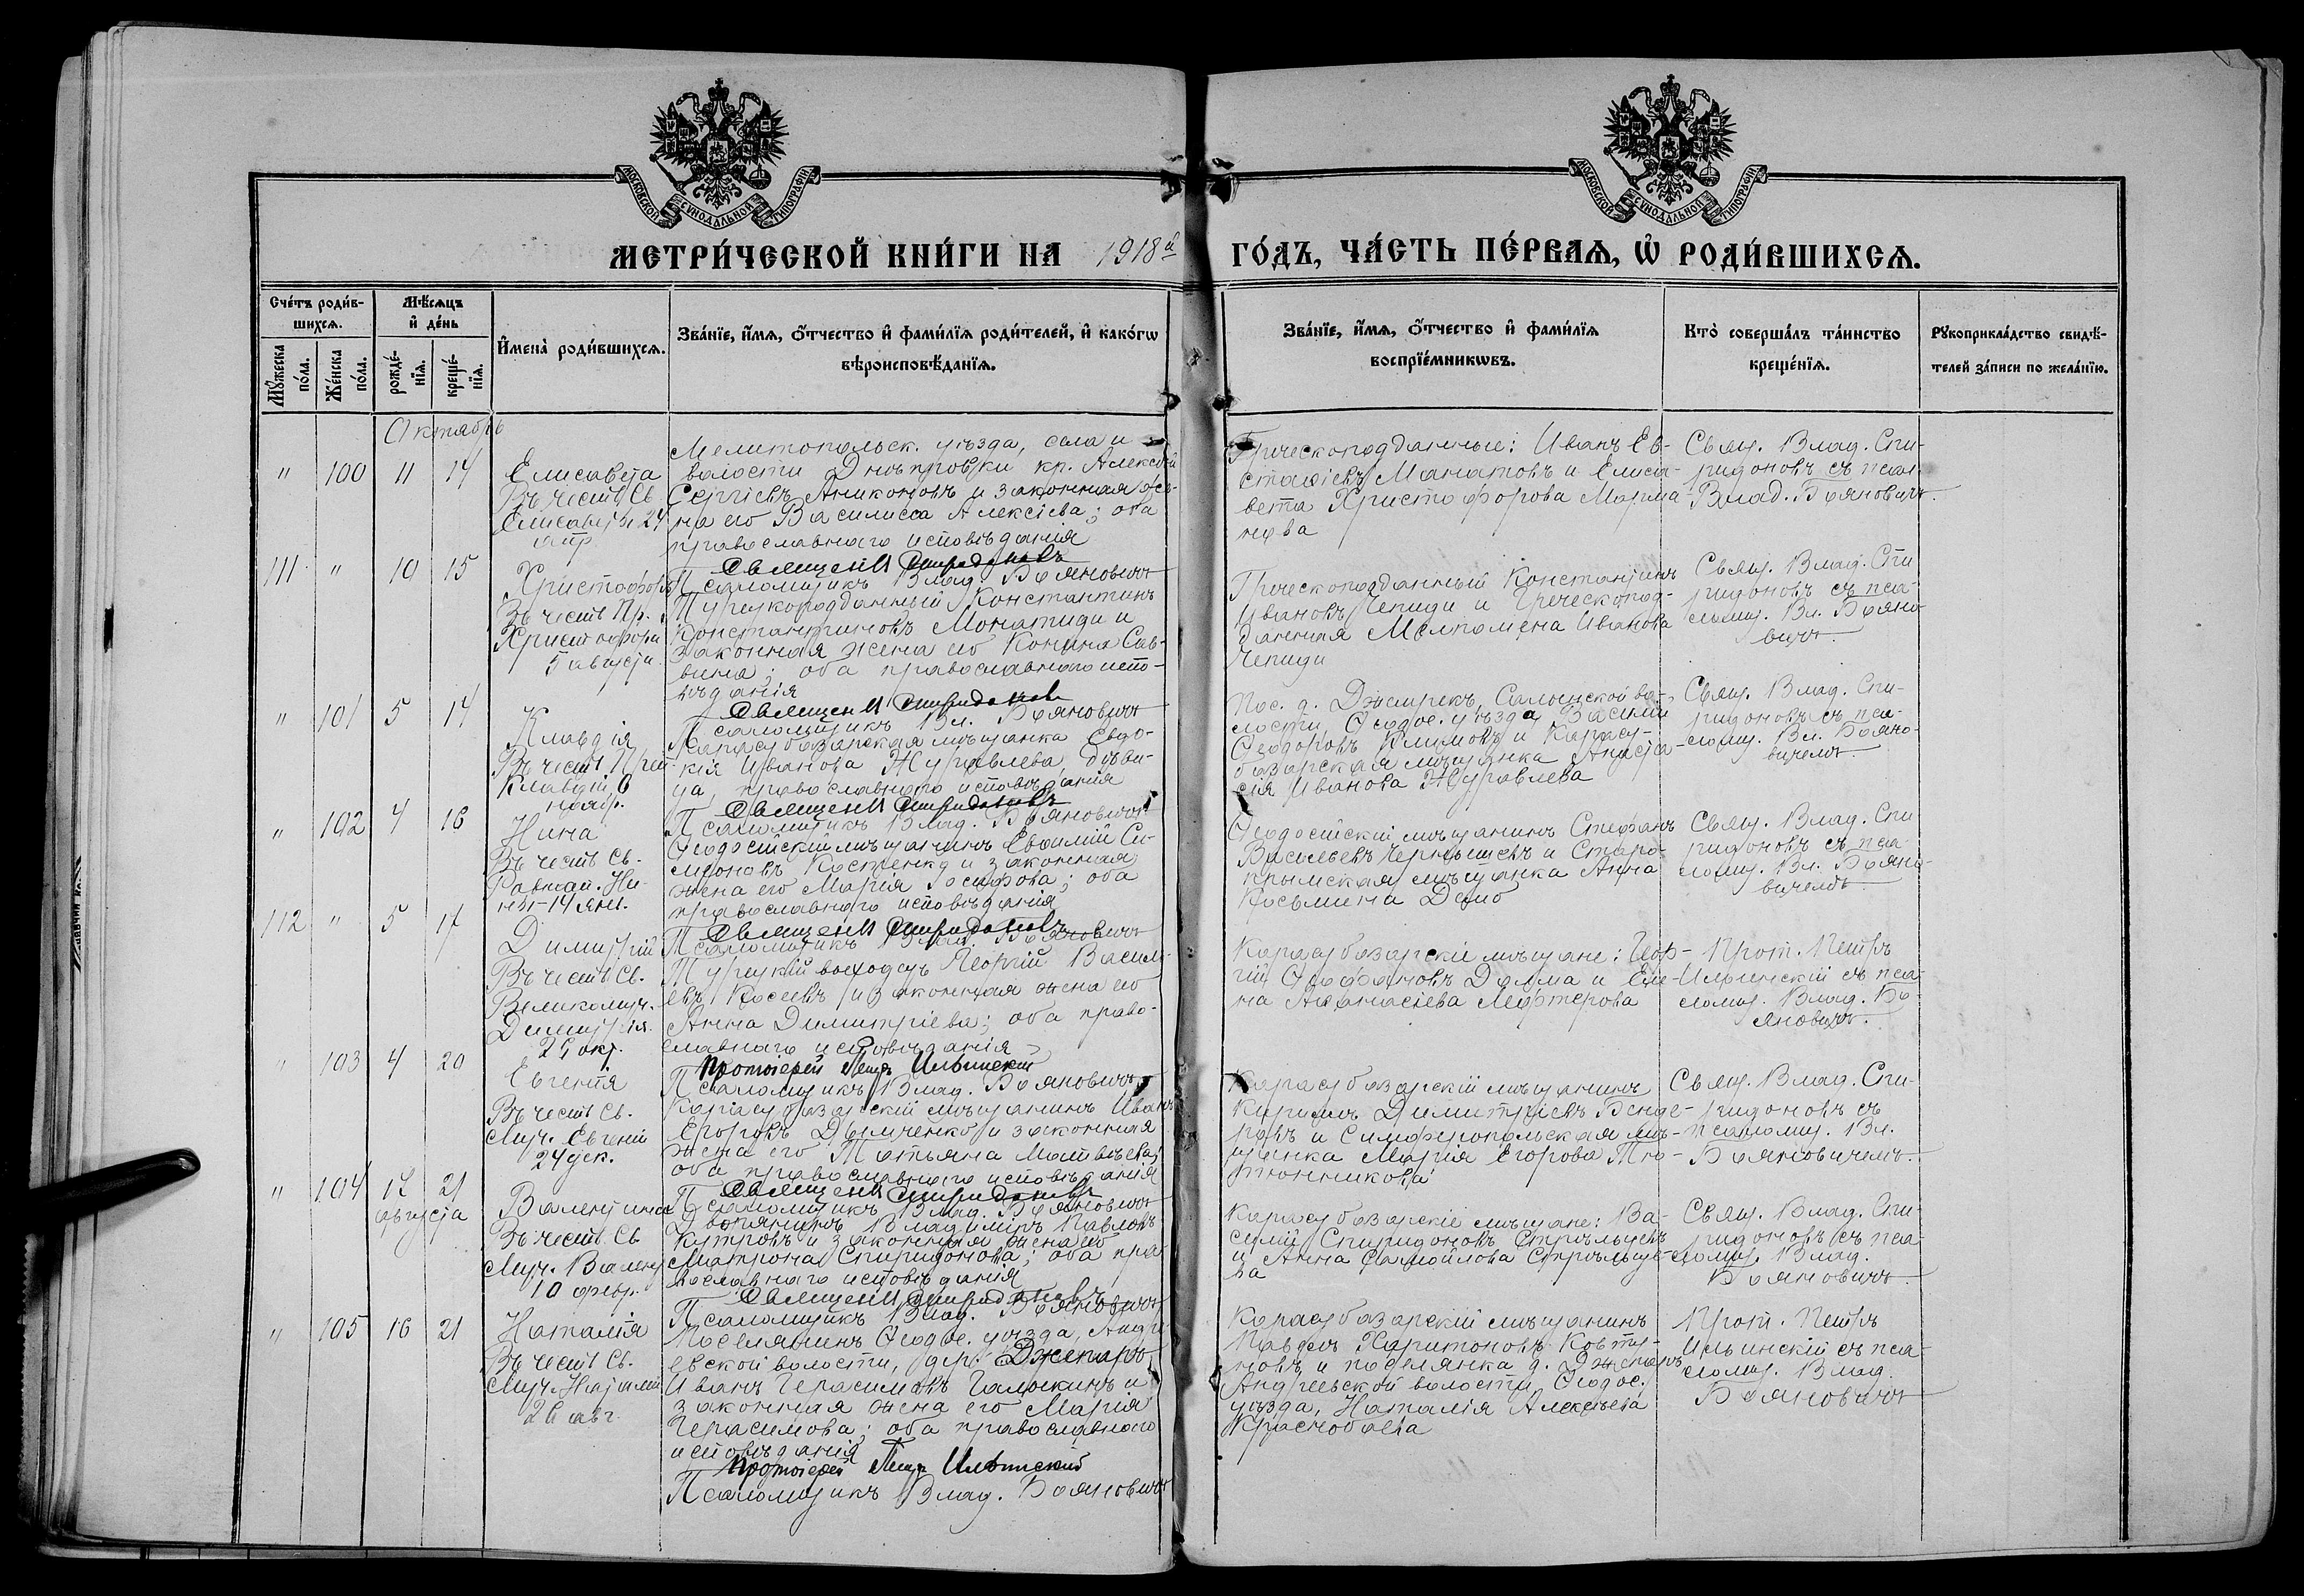 МОСКОВСКОЙ СѴНОДАЛЬНОЙ ТИПОГРАФІИ
МОСКОВСКОЙ СѴНОДАЛЬНОЙ ТИПОГРАФІИ
МЕТРИ́ЧЕСКОЙ КНИ́ГИ НА 1918й ГО́ДЪ, ЧА́СТЬ ПЕ́РВАЯ, Ѽ РОДИ́ВШИХСЯ.
Сче́тъ роди́в-
шихся.
Мꙋжеска по́ла.
Же́нска по́ла.
Мѣ́сяцъ
и҆ де́нь
рожде́-
нїя.
креще́-
нїя.
И҆мена̀ роди́вшихся.
Зва́нїе, и҆́мя, ѻ҆́тчество и҆ фами́лїя роди́телей, и҆ како́гѡ
вѣроисповѣ́данїя.
Зва́нїе, и҆́мя, ѻ҆́тчество и҆ фами́лїя
воспрїе́мникѡвъ.
Кто̀ соверша́лъ та́инство
креще́нїя.
Рꙋкоприкла́дство свидѣ́-
телей за́писи по жела́нїю.
Октябрь
" 100 11 14
Елисавета
Въ честь Св.
Елисаветы 24
апр.
Мелитопольск. уѣзда, села и
волости Днѣпровки кр. Алексѣй
Сергіевъ Аниконовъ и законная же-
на его Василисса Алексіева; оба
православнаго исповѣданія
Священ Спиридоновъ
Псаломщикъ Влад. Бояновичъ
Греческоподданные: Иванъ Ев-
стафіевъ Манатовъ и Елиса-
вета Христофорова Марма-
нова
Свящ. Влад. Спи-
ридоновъ съ псал.
Влад. Бояновичъ.
111 " 10 15
Христофоръ
Въ честь Пр.
Христофора
5 августа
Турецкоподданный Константинъ
Константиновъ Монатиди и
законная жена его Сав-
вина; оба православнаго испо-
вѣданія
Священ Спиридоновъ
Псаломщикъ Вл. Бояновичъ
Греческоподданный Константинъ
Ивановъ Чепиди и Греческопод-
данная Мелпомена Иванова
Чепиди
Свящ. Влад. Спи
ридоновъ съ пса-
ломщ. Вл. Бояно-
вичъ.
" 101 5 14
Клавдія
Въ честь
Клавдіи 6
ноябр.
Карасубазарская мѣщанка Евдо-
кія Иванова Журавлева, дѣви-
ца, православнаго исповѣданія
Священ Спиридоновъ
Псаломщикъ Влад. Бояновичъ
Пос. д. Джеирекъ, Салынской во-
лости, Ѳеодос. уѣзда Василій
Ѳеодоровъ Климовъ и Карасу-
базарская мѣщанка Анаста-
сія Иванова Журавлева
Свящ. Влад. Спи-
ридоновъ съ пса-
ломщ. Вл. Бояно-
вичемъ.
" 102 4 16
Нина
Въ честь Св.
Равноап. Ни-
ны-14 янв.
Ѳеодосійскій мѣщанинъ Евѳимій Си-
меоновъ Костенко и законная
жена его Марія Іосифова; оба
православнаго исповѣданія
Священ Спиридоновъ
Псаломщикъ Влад. Бояновичъ
Ѳеодосійскій мѣщанинъ Стефанъ
Васильевъ Чернышевъ и Старо-
крымская мѣщанка Анна
Косьмина
Свящ. Влад. Спи
ридоновъ съ пса-
ломщ. Вл. Бояно-
вичемъ.
112 " 5 17
Димитрій
Въ честь Св.
Великомуч.
Димитрія
26 окт.
Турецкій выходецъ Георгій Василь-
евъ Косевъ и законная жена его
Анна Димитріева; оба право-
славнаго исповѣданія
Протоіерей Петръ Ильинскій
Псаломщикъ Влад. Бояновичъ
Карасубазарскіе мѣщане: Геор-
гій Ѳеофановъ Далма и Еле-
на Аѳанасіева Мафтерова
Прот. Петръ
Ильинскій съ пса-
ломщ. Влад. Бо-
яновичъ.
" 103 4 20
Евгенія
Въ честь Св.
Муч. Евгеніи
24 дек.
Карасубазарскій мѣщанинъ Иванъ
Егоровъ Дьяченко и законная
жена его Татьяна Матвѣева;
оба православнаго исповѣданія
Священ Спиридоновъ
Псаломщикъ Влад. Бояновичъ
Карасубазарскій мѣщанинъ
Кириллъ Димитріевъ Бенде-
ровъ и Симферопольская мѣ-
щанка Марія Егорова Тю-
тюнникова
Свящ. Влад. Спи-
ридоновъ съ
псаломщ. Вл.
Бояновичемъ.
" 104 12 21
августа
Валентина
Въ честь Св.
Муч. Вален.
10 февр.
Дворянинъ Владиміръ Павловъ
и законная жена его
Матрона Спиридонова; оба пра-
вославнаго исповѣданія
Священ Спиридоновъ
Псаломщикъ Влад. Бояновичъ
Карасубазарскіе мѣщане: Ва-
силій Спиридоновъ Стрѣльцевъ
и Анна Самойлова Стрѣльце-
ва
Свящ. Влад. Спи-
ридоновъ съ пса-
ломщ. Влад.
Бояновичъ.
" 105 16 21
Наталія
Въ честь Св.
Муч. Наталіи
26 авг.
Поселянинъ Ѳеодос. уѣзда, Андре-
евской волости, дер. Джепаръ,
Иванъ Герасимовъ Галюкинъ и
законная жена его Марія
Герасимова; оба православнаго
исповѣданія
Протоіерей Петръ Ильинскій
Псаломщикъ Влад. Бояновичъ
Карасубазарскій мѣщанинъ
Павелъ Харитоновъ Ковту-
новъ и поселянка д. Джепаръ
Андреевской волости Ѳеодос.
уѣзда, Наталія Алексѣева
Краснобаева
Прот. Петръ
Ильинскій съ пса-
ломщ. Влад.
Бояновичъ